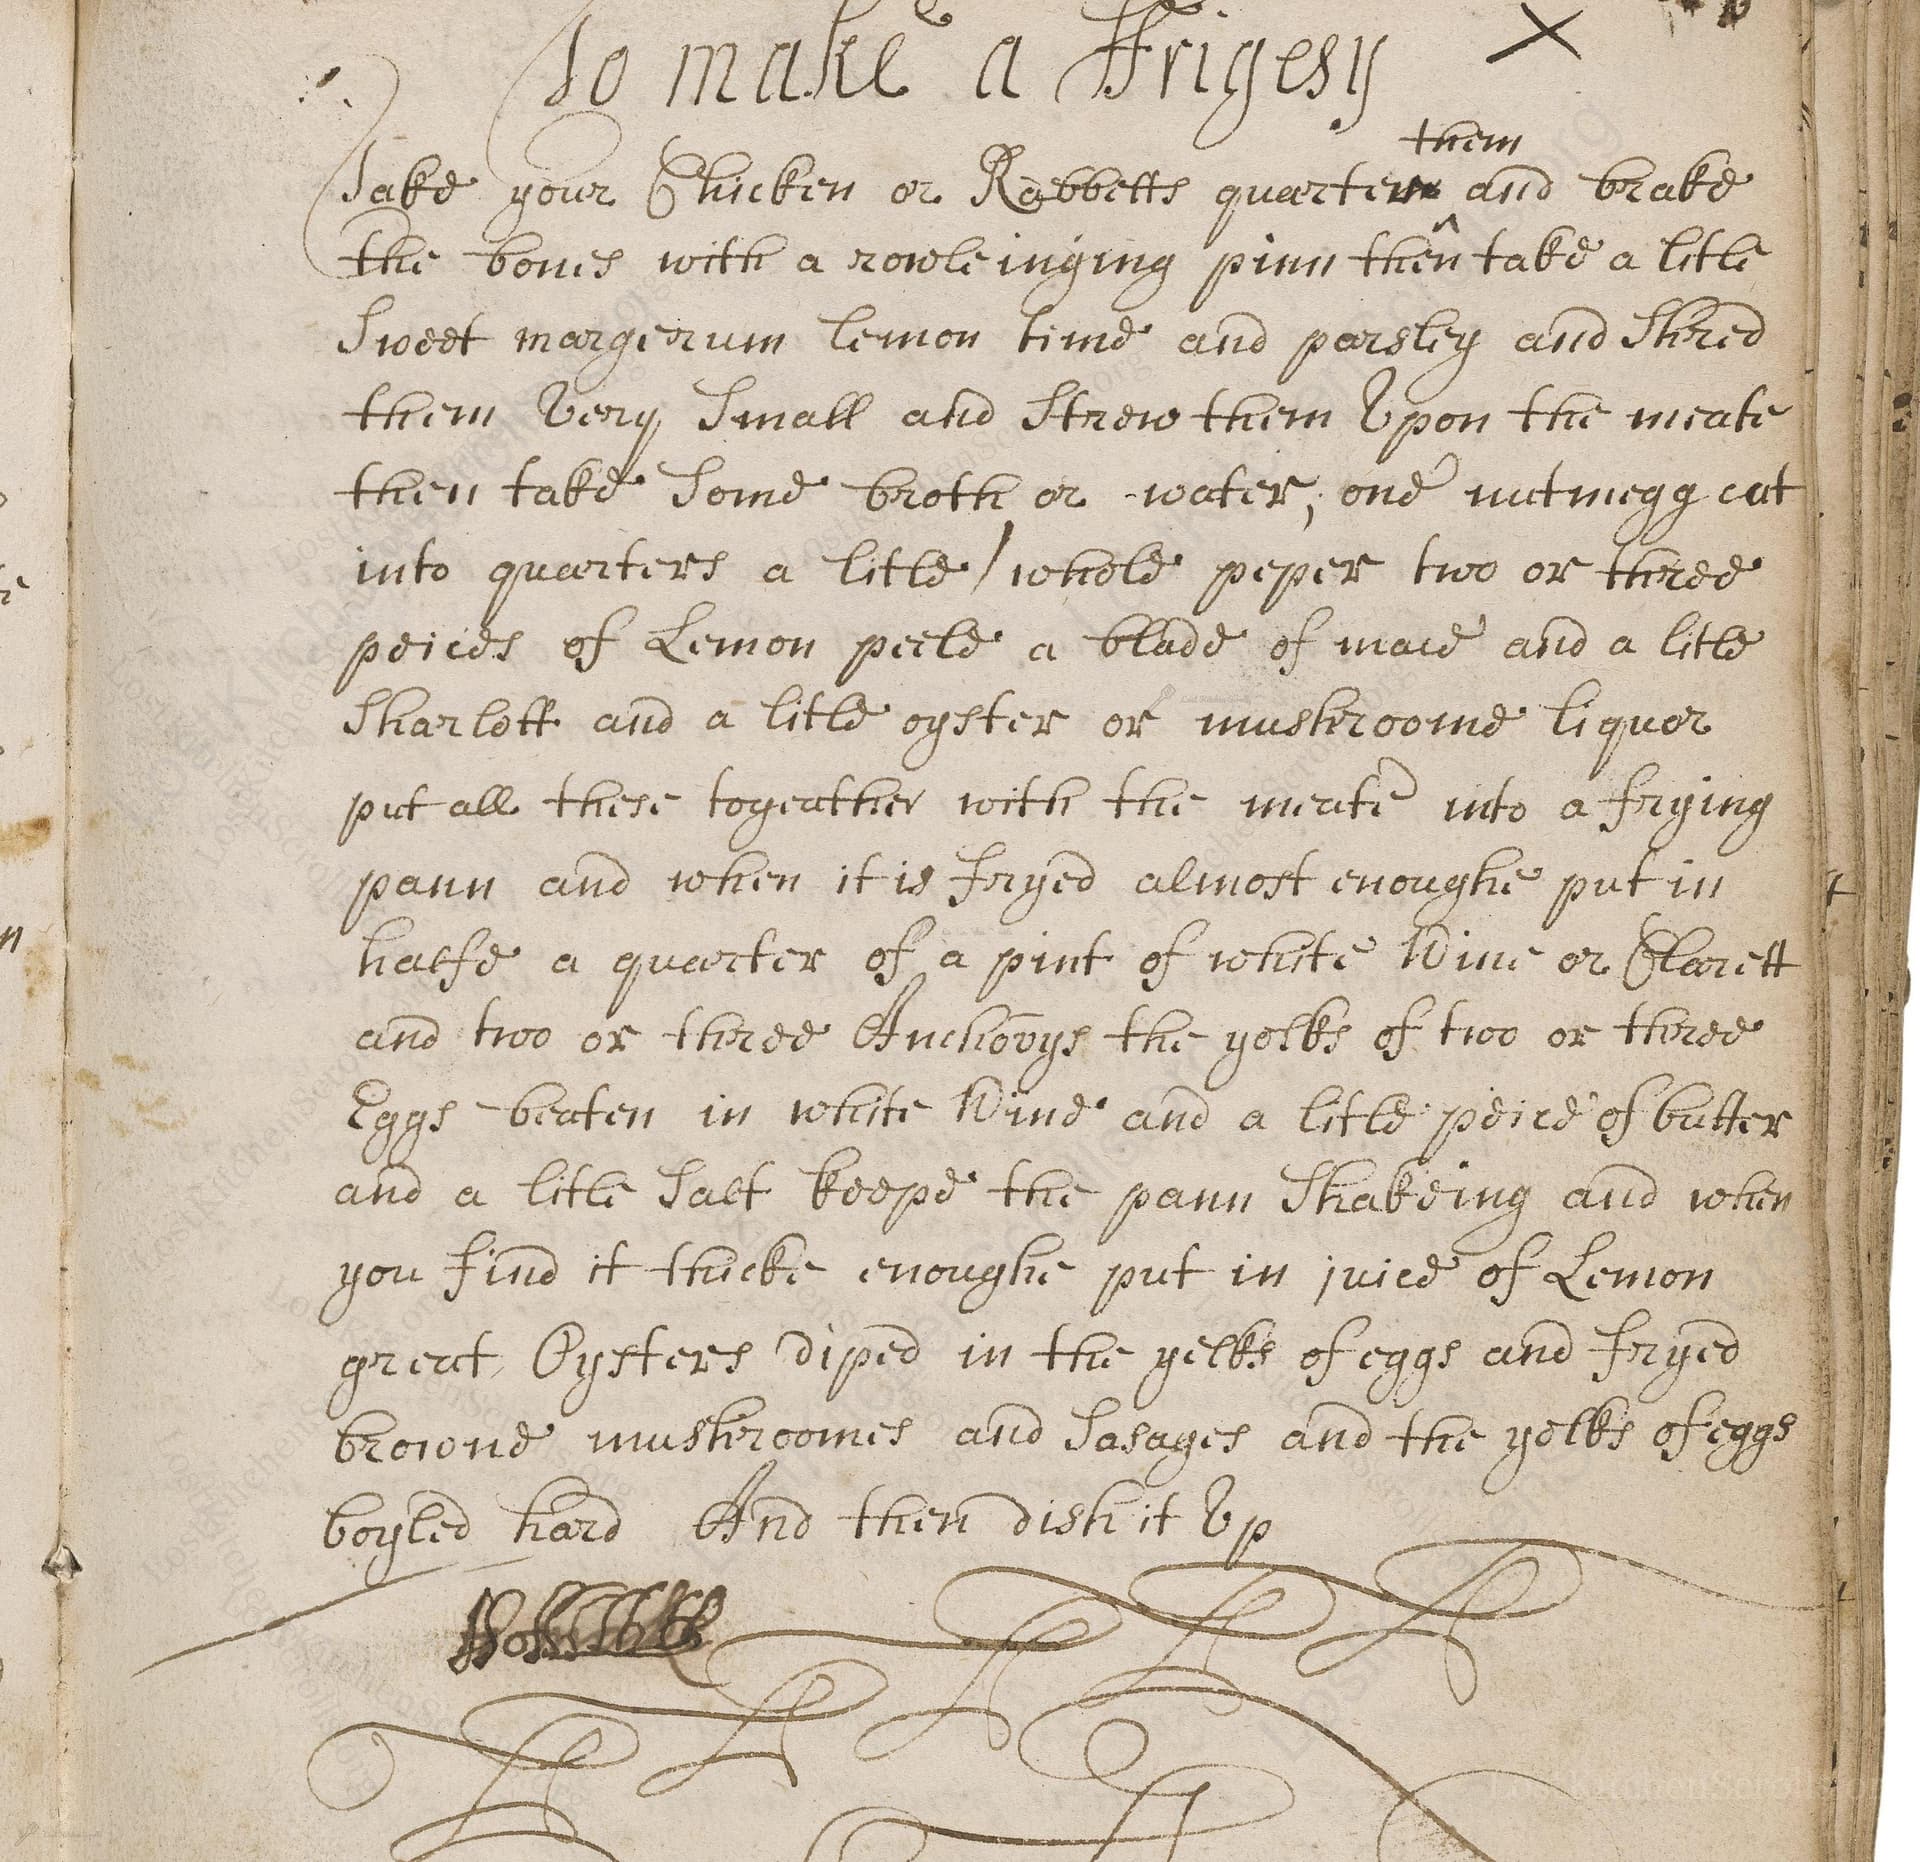 To make a Frigesy
Take your Chicken or Rabbetts quarter them and brake
the bones with a rowleinging pinn then take a litle
Sweet margerum lemon time and parsley and Shred
them Very Small and Strew them Vpon the meate
then take Some broth or water, one nutmegg cut
into quarters a litle / whole peper two or three
peices of Lemon peele a blade of mace and a litle
Sharlott and a litle oyster or mushroome liquor
put all these togeather with the meate into a frying
pann and when it is fryed almost enoughe put in
halfe a quarter of a pint of white Wine or Clarett
and two or three Anchovys the yolks of two or three
Eggs beaten in white Wine and a litle peice of butter
and a litle Salt keepe the pann Shakeing and when
you find it thicke enoughe put in juice of Lemon
great Oysters diped in the yelks of eggs and fryed
browne mushroomes and Sasages and the yolks of eggs
boyled hard And then dish it Vp